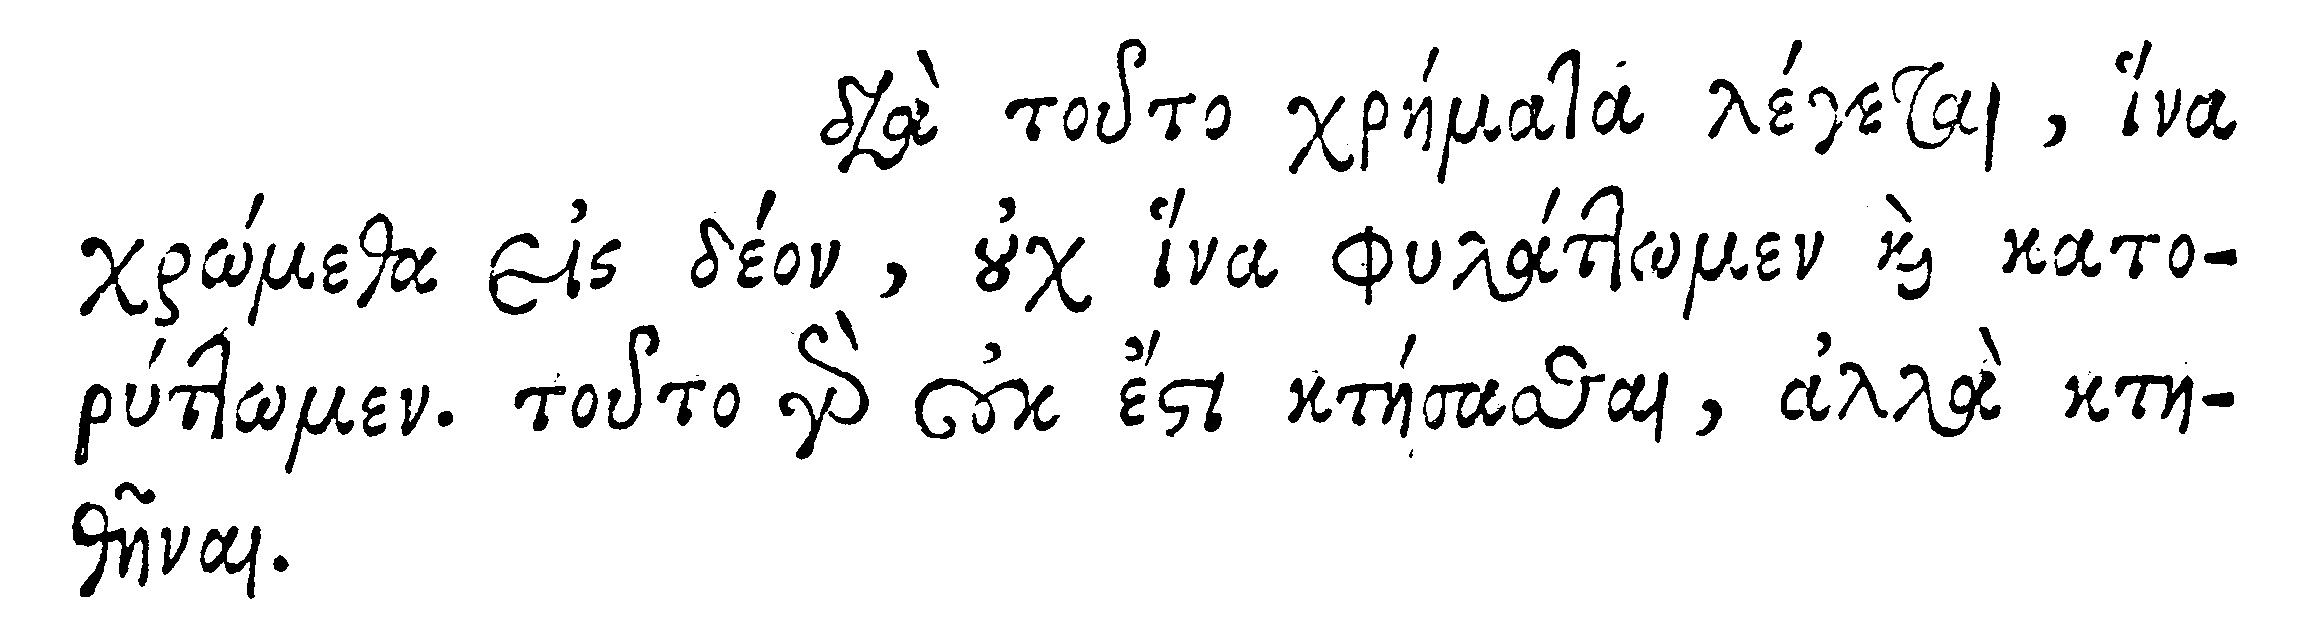 διὰ τοῦτο χρήματα λέγεται, ἵνα
χρώμεθα εἰς δέον, οὐχ ἵνα φυλάττωμεν καὶ κατο-
ρύττωμεν. τοῦτο γὰρ οὐκ ἔστι κτήσασθαι, ἀλλὰ κτη-
θῆναι.